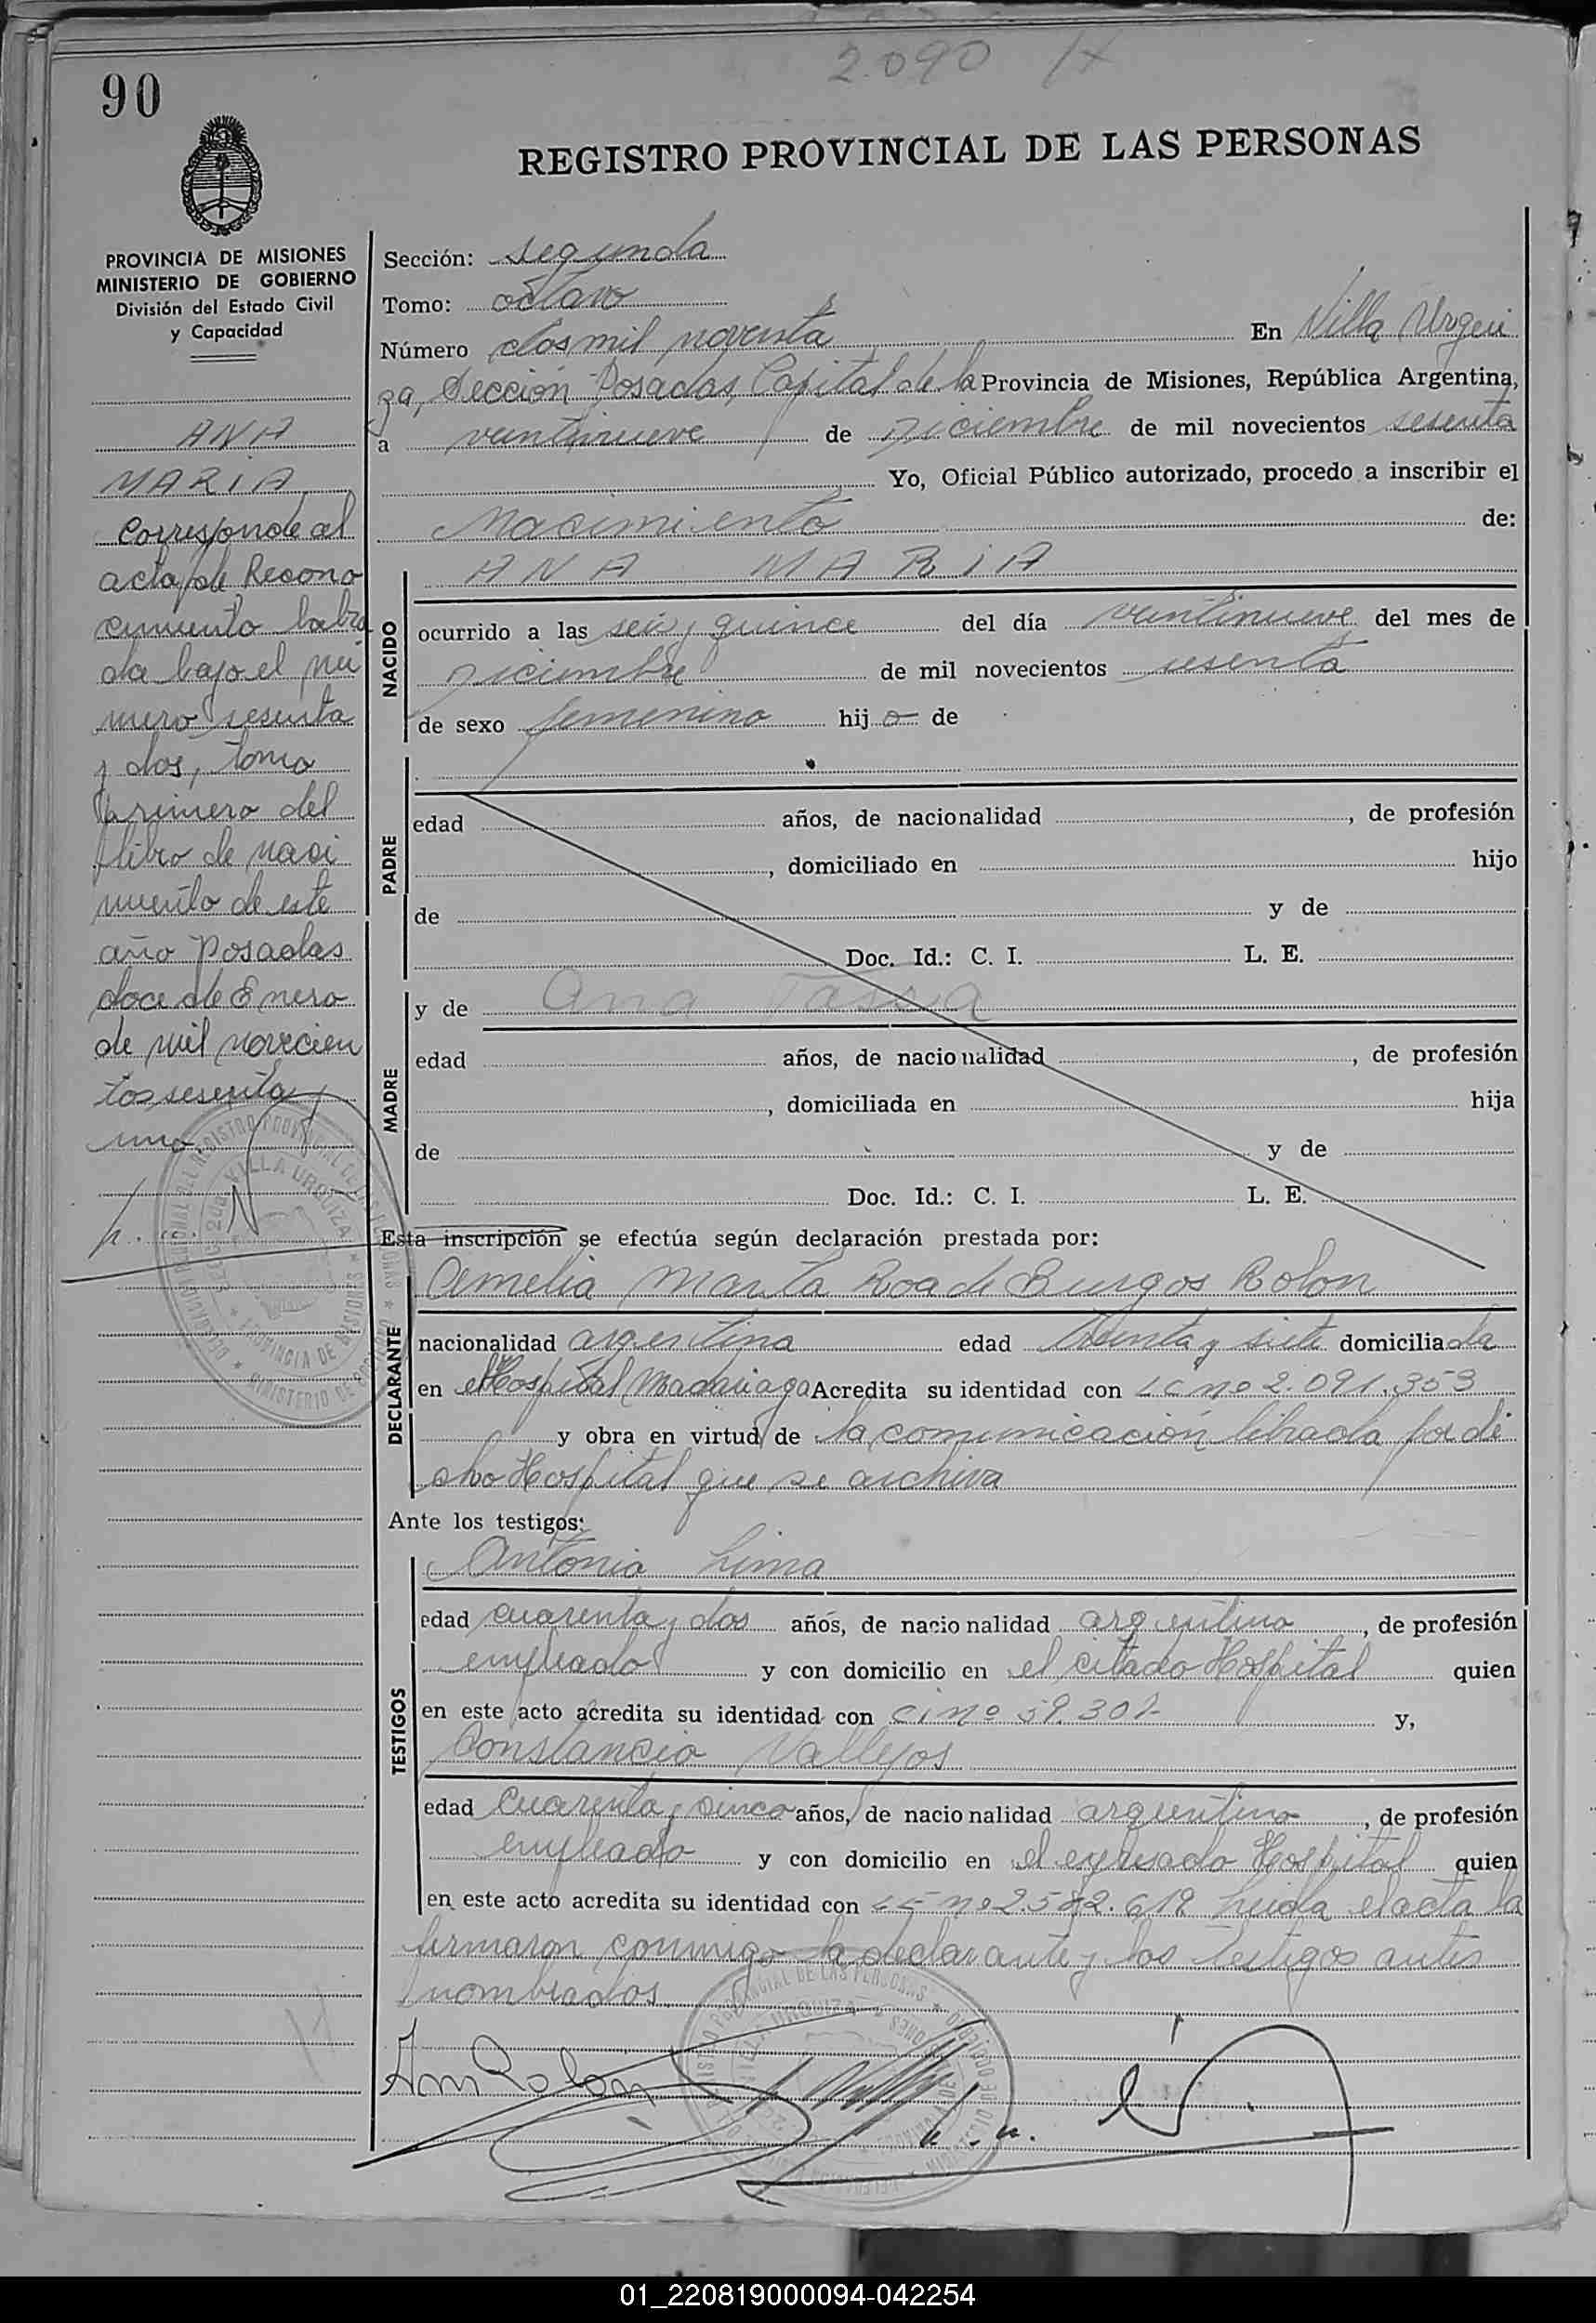 2.090
90
REGISTRO PROVINCIAL DE LAS PERSONAS
PROVINCIA DE MISIONES
MINISTERIO DE GOBIERNO
División del Estado Civil
y Capacidad
ANA
MARIA
Corresponde al
acta de Recono
cimiento labra
da bajo el nú
mero sesenta
y dos, tomo
primero del
libro de naci
miento de este
año Posadas
doce de Enero
de mil novecien
tos sesenta y
uno.
Sección: segunda
Tomo: octavo
Número dos mil noventa En Villa Urqui
za, Sección Posadas, Capital de la Provincia de Misiones, República Argentina,
a veintinueve de Diciembre de mil novecientos sesenta
Yo, Oficial Público autorizado, procedo a inscribir el
Nacimiento de:
ANA MARIA
NACIDO
ocurrido a las seis y quince del día veintinueve del mes de
Diciembre de mil novecientos sesenta
de sexo femenino hij a de
PADRE
edad años, de nacionalidad , de profesión
, domiciliado en hijo
de y de
Doc. Id.: C. I. L. E.
y de Ana Tassia
MADRE
edad años, de nacionalidad , de profesión
, domiciliada en hija
de y de
Doc. Id.: C. I. L. E.
Esta inscripción se efectúa según declaración prestada por:
Amelia Marta Roa de Burgos Rolon
DECLARANTE
nacionalidad argentina edad treinta y siete domiciliada
en el Hospital Madariaga Acredita su identidad con LC nº 2.091.353
y obra en virtud de la comunicación librada por di
cho Hospital que se archiva
Ante los testigos:
TESTIGOS
Antonio Lima
edad cuarenta y dos años, de nacionalidad argentino, de profesión
empleado y con domicilio en el citado Hospital quien
en este acto acredita su identidad con CI nº 59.302 y,
Constancio Vallejos
edad cuarenta y cinco años, de nacionalidad argentino, de profesión
empleado y con domicilio en el expresado Hospital quien
en este acto acredita su identidad con LE nº 2.582.618 Leida el acta la
firmaron conmigo la declarante y los testigos antes
nombrados.
Am Rolon
01_220819000094-042254